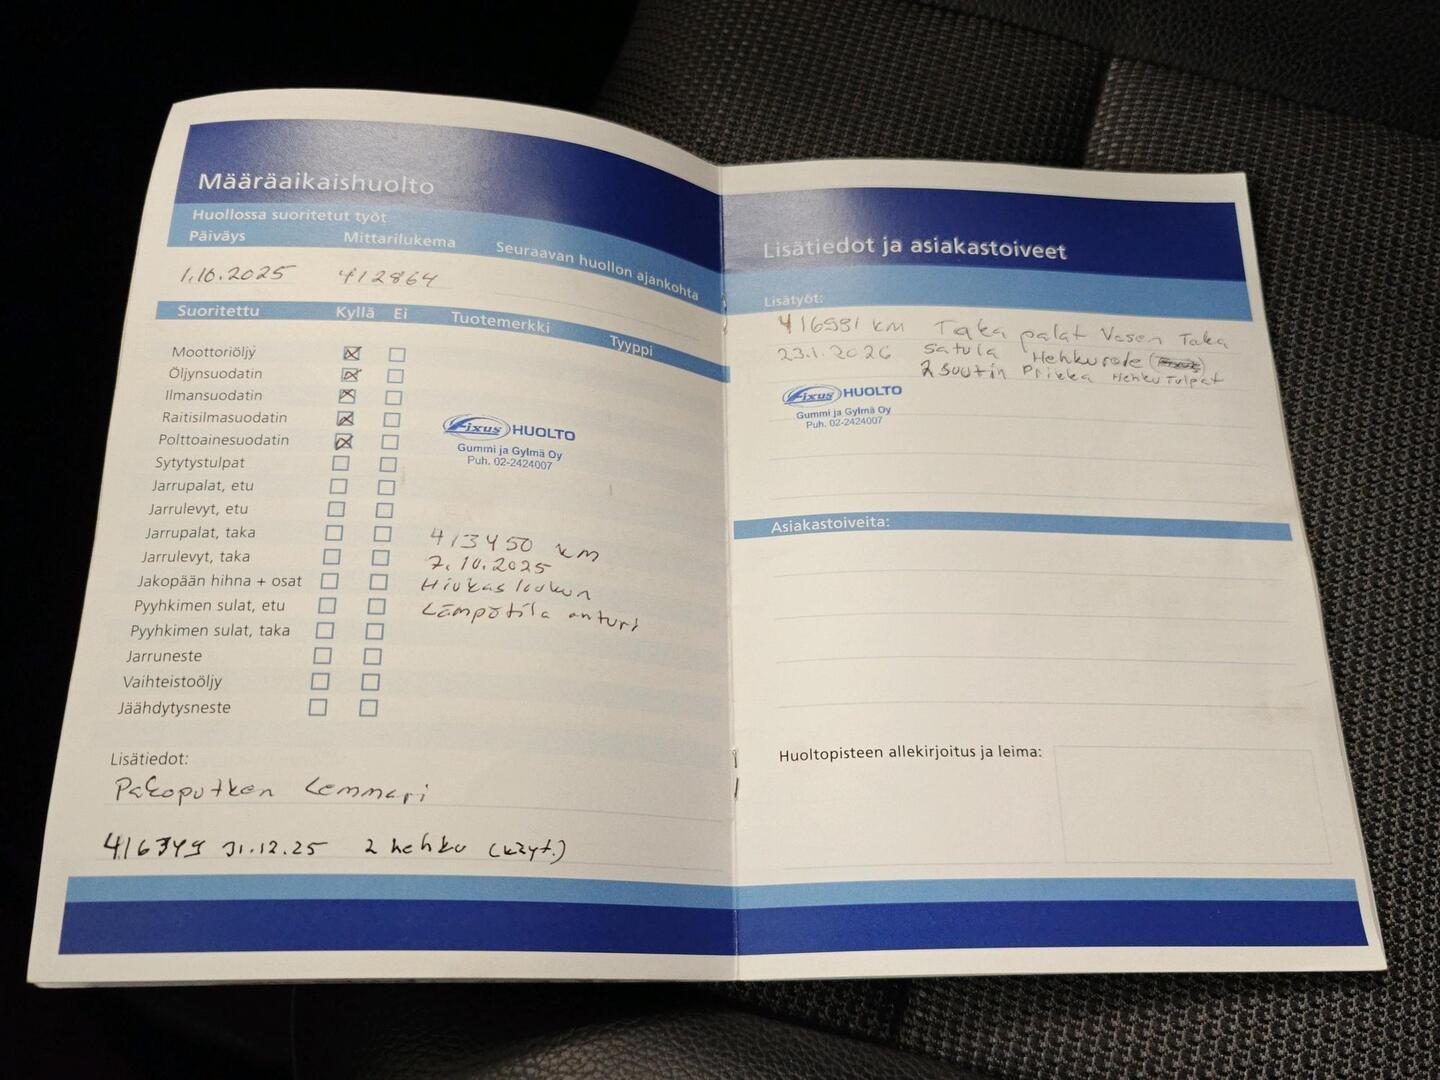 Määräaikaishuolto
Huollossa suoritetut työt
Päiväys Mittarilukema Seuraavan huollon ajankohta
1.10.2025 412864
Suoritettu Kyllä Ei Tuotemerkki Tyyppi
Moottoriöljy
Öljynsuodatin
Ilmansuodatin
Raitisilmasuodatin
Polttoainesuodatin
Sytytystulpat
Jarrupalat, etu
Jarrulevyt, etu
Jarrupalat, taka
Jarrulevyt, taka
Jakopään hihna + osat
Pyyhkimen sulat, etu
Pyyhkimen sulat, taka
Jarruneste
Vaihteistoöljy
Jäähdytysneste
Fixus HUOLTO
Gummi ja Gylmä Oy
Puh. 02-2424007
413450 km
7.10.2025
Hiukasloukun
Lämpötila anturi
Lisätiedot:
Pakoputken Lemmari
416349 31.12.25 2 hehku (käyt.)
Lisätiedot ja asiakastoiveet
Lisätyöt:
416981 km Taka palat Vasen Taka
23.1.2026 Satula Hehkurele
2 suutin Prikka Hehku Tulpat
Fixus HUOLTO
Gummi ja Gylmä Oy
Puh. 02-2424007
Asiakastoiveita:
Huoltopisteen allekirjoitus ja leima: